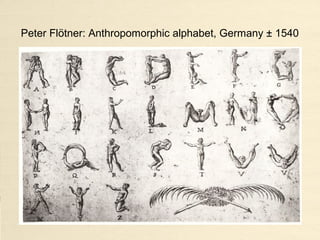 Peter Flötner: Anthropomorphic alphabet, Germany ± 1540
A D E F G
H I K L M N O
P Q R S T V V
Z